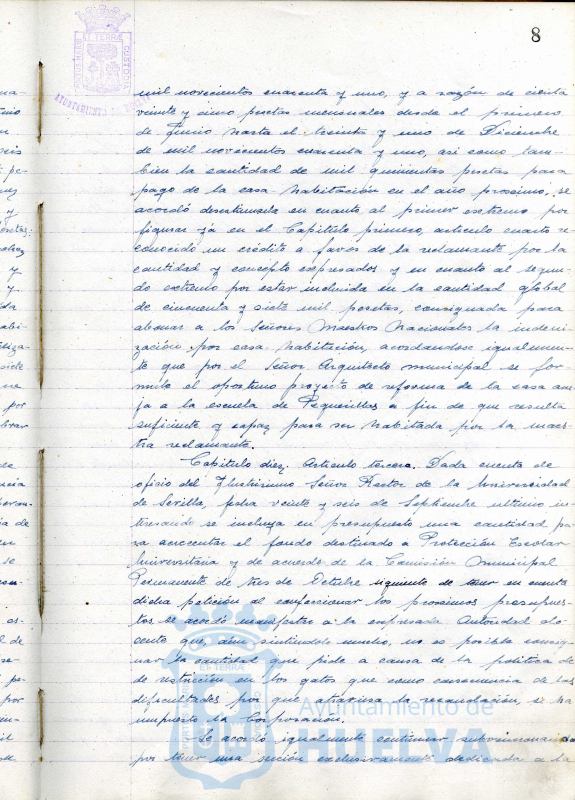 8
mil novecientos cuarenta y uno, y a razón de cienta
veinte y cinco pesetas mensuales desde el primero
de Junio hasta el treinta y uno de Diciembre
de mil novecientos cuarenta y uno, asi como tam-
bien la cantidad de mil quinientas pesetas para
pago de la casa-habitación en el año proximo, se
acordó desestimarla en cuanto al primer extremo por
figurar ya en el Capitulo primero, articulo cuarto re-
conocido un crédito a favor de la reclamante por la
cantidad y concepto expresados y en cuanto al segun-
do extremo por estar incluida en la cantidad global
de cincuenta y siete mil pesetas, consignada para
abonar a los Señores Maestros Nacionales la indemni-
zación por casa habitación, acordandose igualmen-
te que por el Señor Arquitecto municipal se for-
mule el oportuno proyecto de reforma de la casa ane-
ja a la escuela de Pequeñillos a fin de que resulte
suficiente y capaz para ser habitada por la maes-
tra reclamante.
Capitulo diez: Articulo tercero. Dada cuenta de
oficio del Ilustrisimo Señor Rector de la Universidad
de Sevilla, fecha veinte y seis de Septiembre ultimo in-
teresando se incluya en presupuesto una cantidad pa-
ra acrecentar el fondo destinado a Protección Escolar
Universitaria y de acuerdo de la Comisión Municipal
Permanente de tres de Octubre siguiente de tener en cuenta
dicha petición al confeccionar los proximos presupues-
tos se acordó manifestar a la expresada Autoridad do-
cente que, aun sintiendolo mucho, no es posible consig-
nar la cantidad que pide a causa de la politica de
de restricción en los gastos que como consecuencia de las
dificultades por que atraviesa la recaudación, se ha
impuesto la Corporación.
Se acordó igualmente continuar subvencionando
por tener una sección exclusivamente dedicada a la
Ayuntamiento de
HUELVA